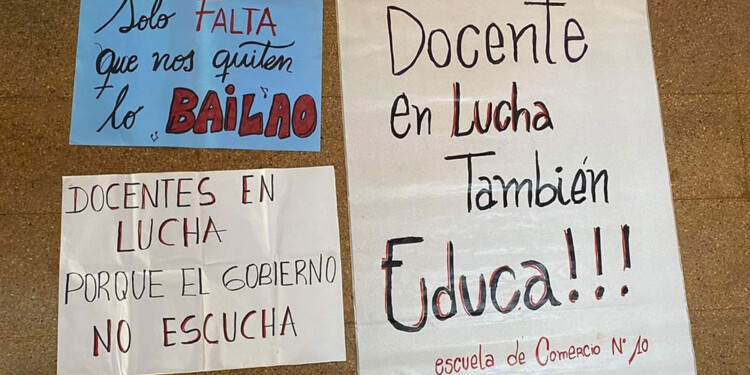 Solo FALTA
que nos quiten
lo BAILAO
DOCENTES EN
LUCHA
PORQUE EL GOBIERNO
NO ESCUCHA
Docente
en Lucha
También
Educa!!!
escuela de Comercio N° 10